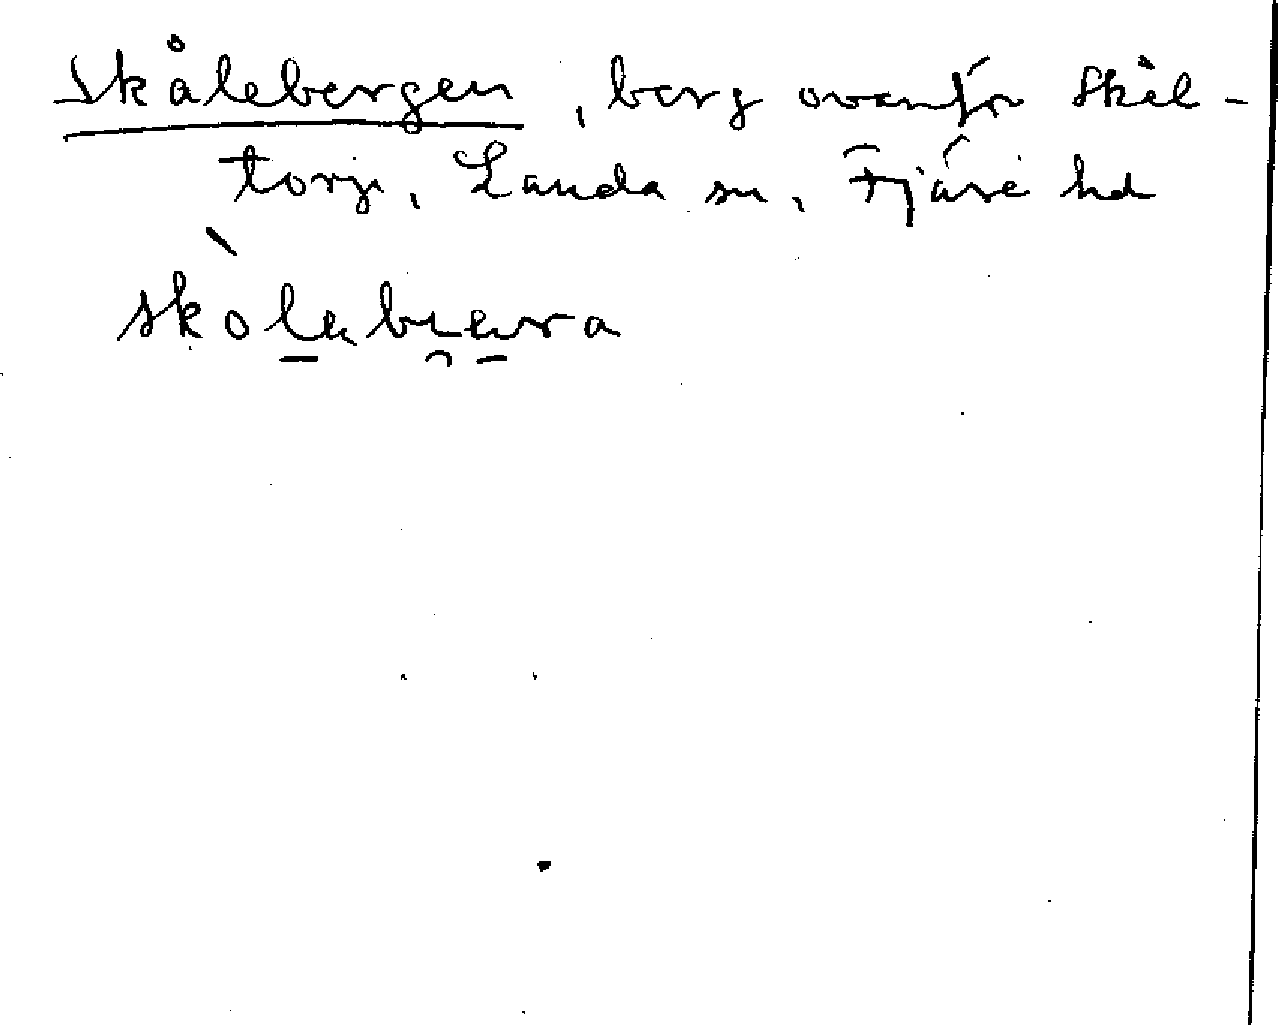 Skålebergen, berg ovanför Skål-
torp, Landa sn, Fjäre hd